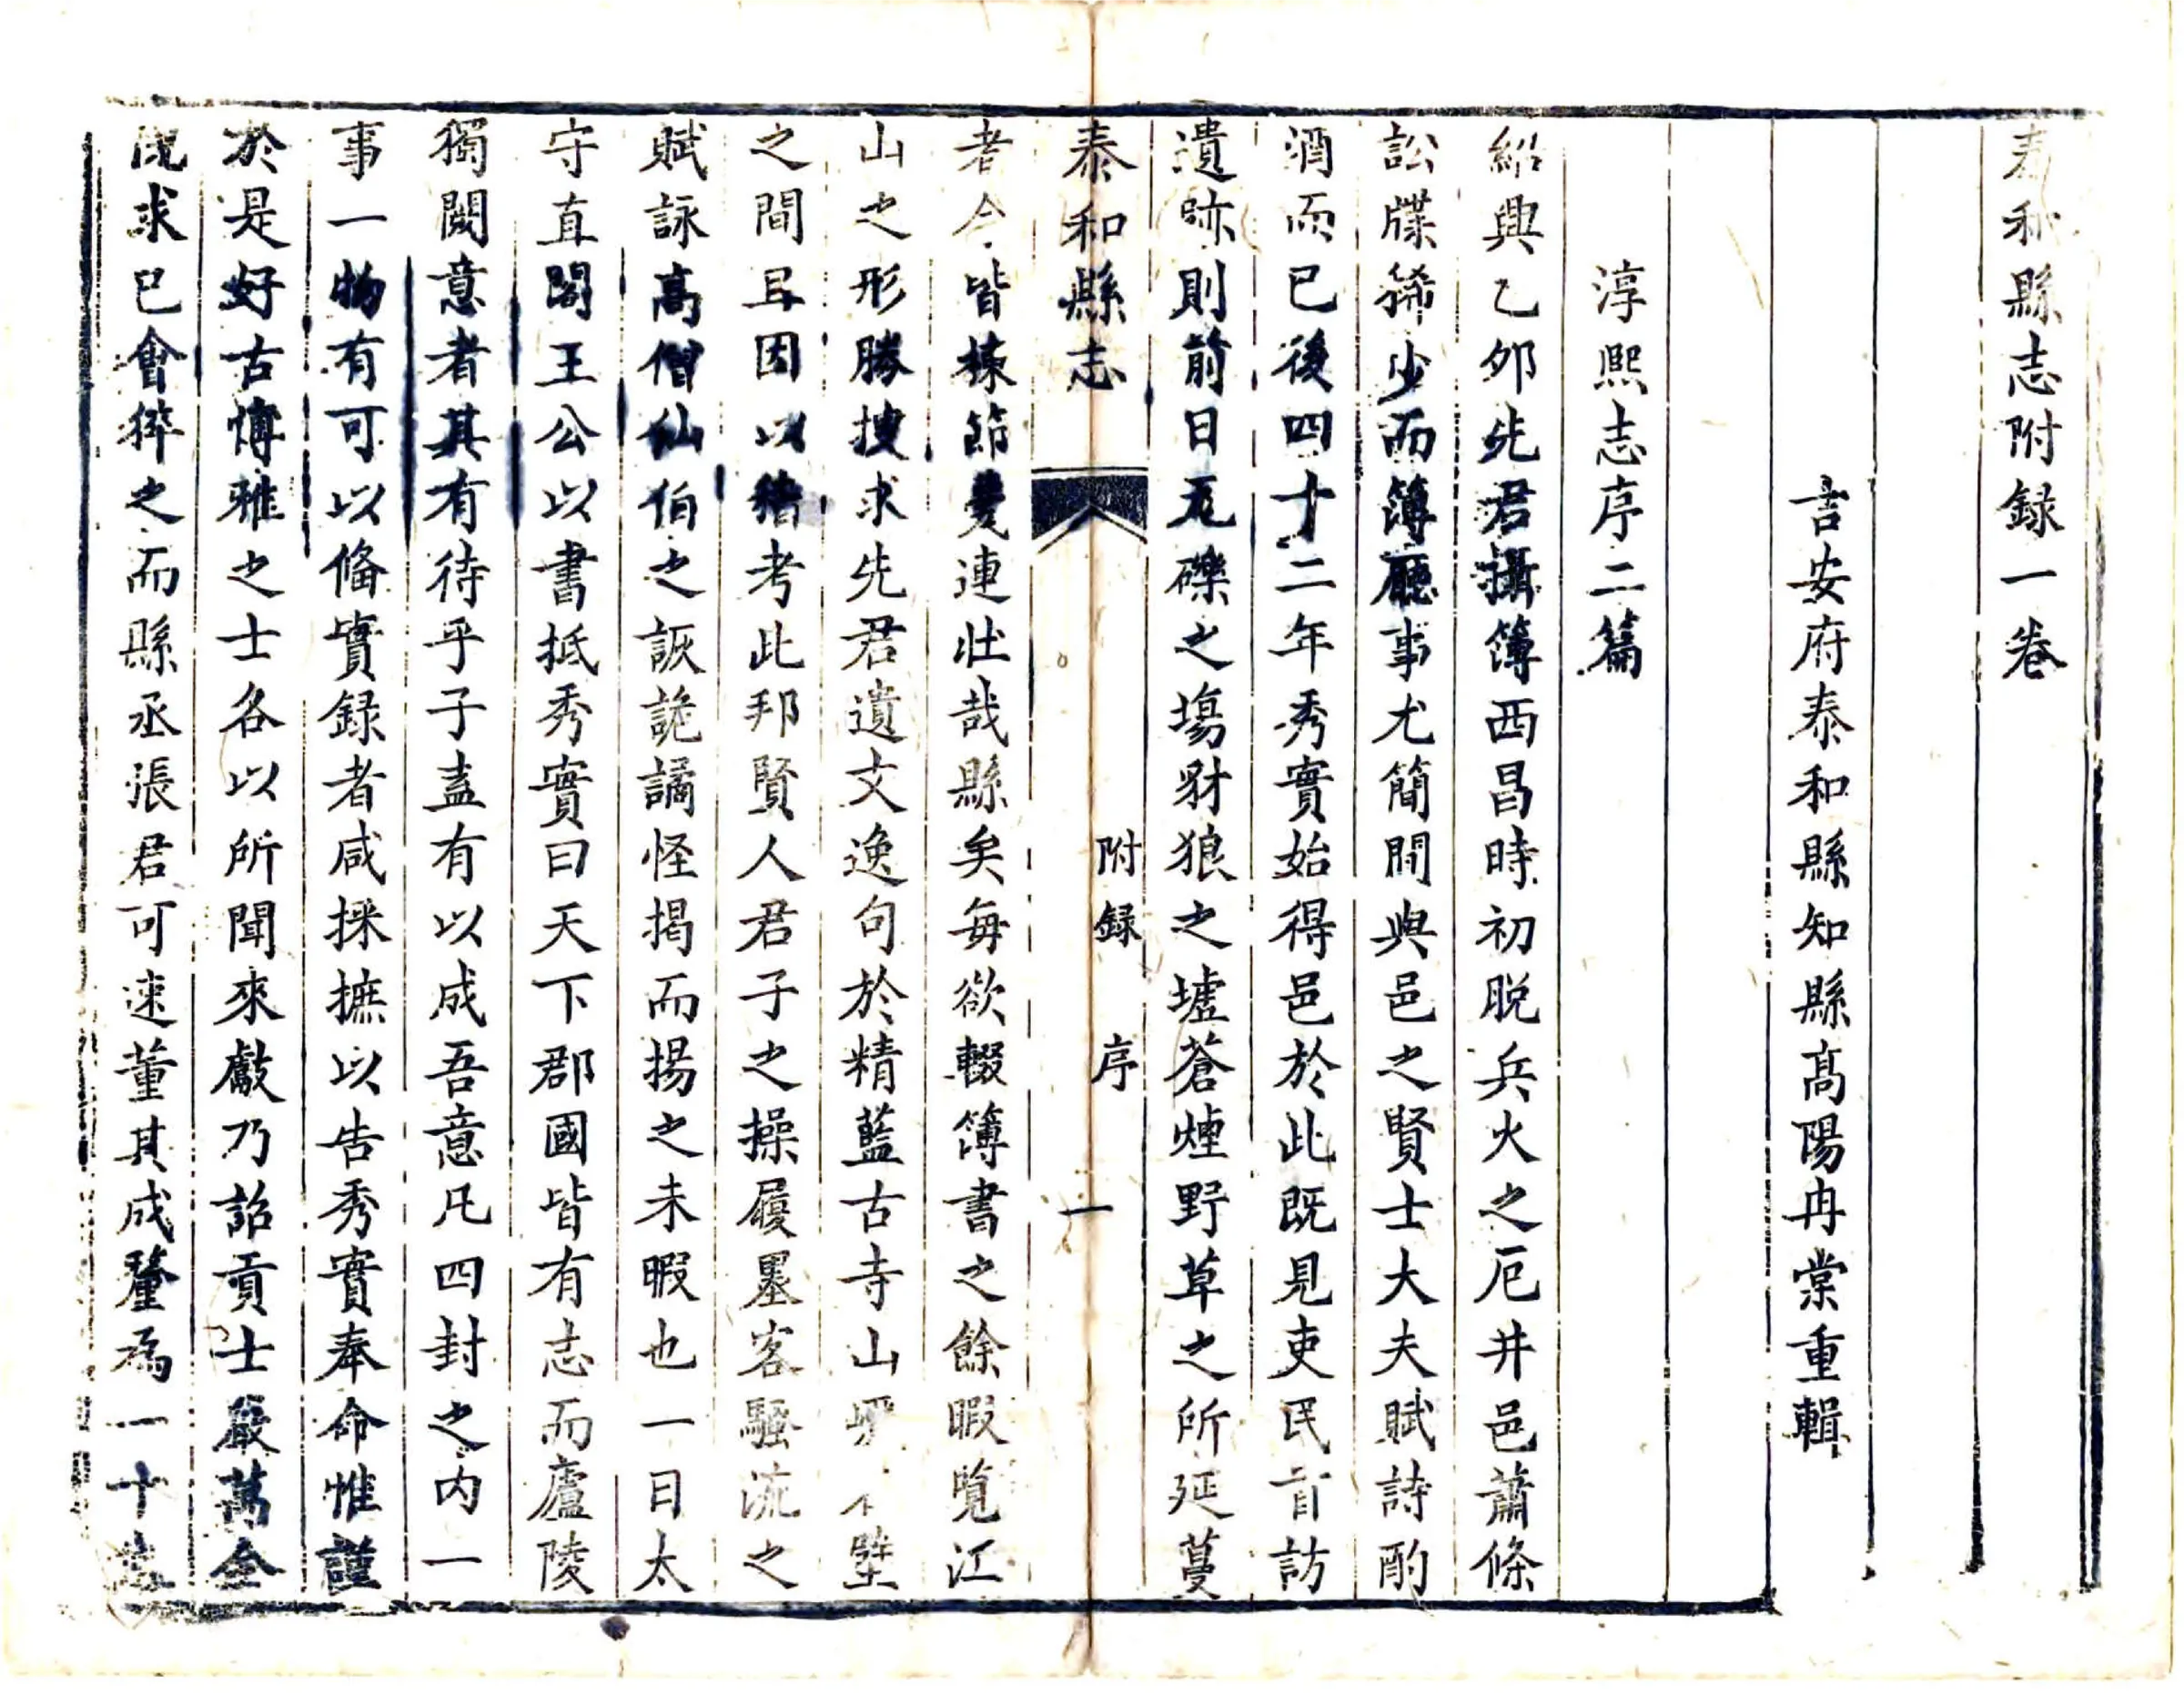 泰和縣志附録一卷
吉安府泰和縣知縣髙陽冉棠重輯
淳熙志序二篇
紹興乙夘先君攝簿西昌時初脱兵火之厄井邑蕭條
訟牒稀少而簿廳事尤簡閒與邑之賢士大夫賦詩酌
酒而已後四十二年秀實始得邑於此既見吏民首訪
遺跡則前日瓦礫之塲豺狼之墟蒼煙野草之所延蔓
泰和縣志
附録
序
一
者今皆棟節甍連壯哉縣矣每欲輟簿書之餘暇覧江
山之形勝搜求先君遺文逸句於精藍古寺山崖壁
之間且因以稽考此邦賢人君子之操履墨客騷流之
賦詠髙僧仙伯之詼詭譎怪揭而揚之未暇也一日太
守直閣王公以書抵秀實曰天下郡國皆有志而廬陵
獨闕意者其有待乎子盍有以成吾意凡四封之内一
事一物有可以俻實録者咸採摭以告秀實奉命惟謹
於是好古愽雅之士各以所聞來獻乃詔貢士嚴萬全
旣求已會稡之而縣丞張君可速董其成釐爲一十